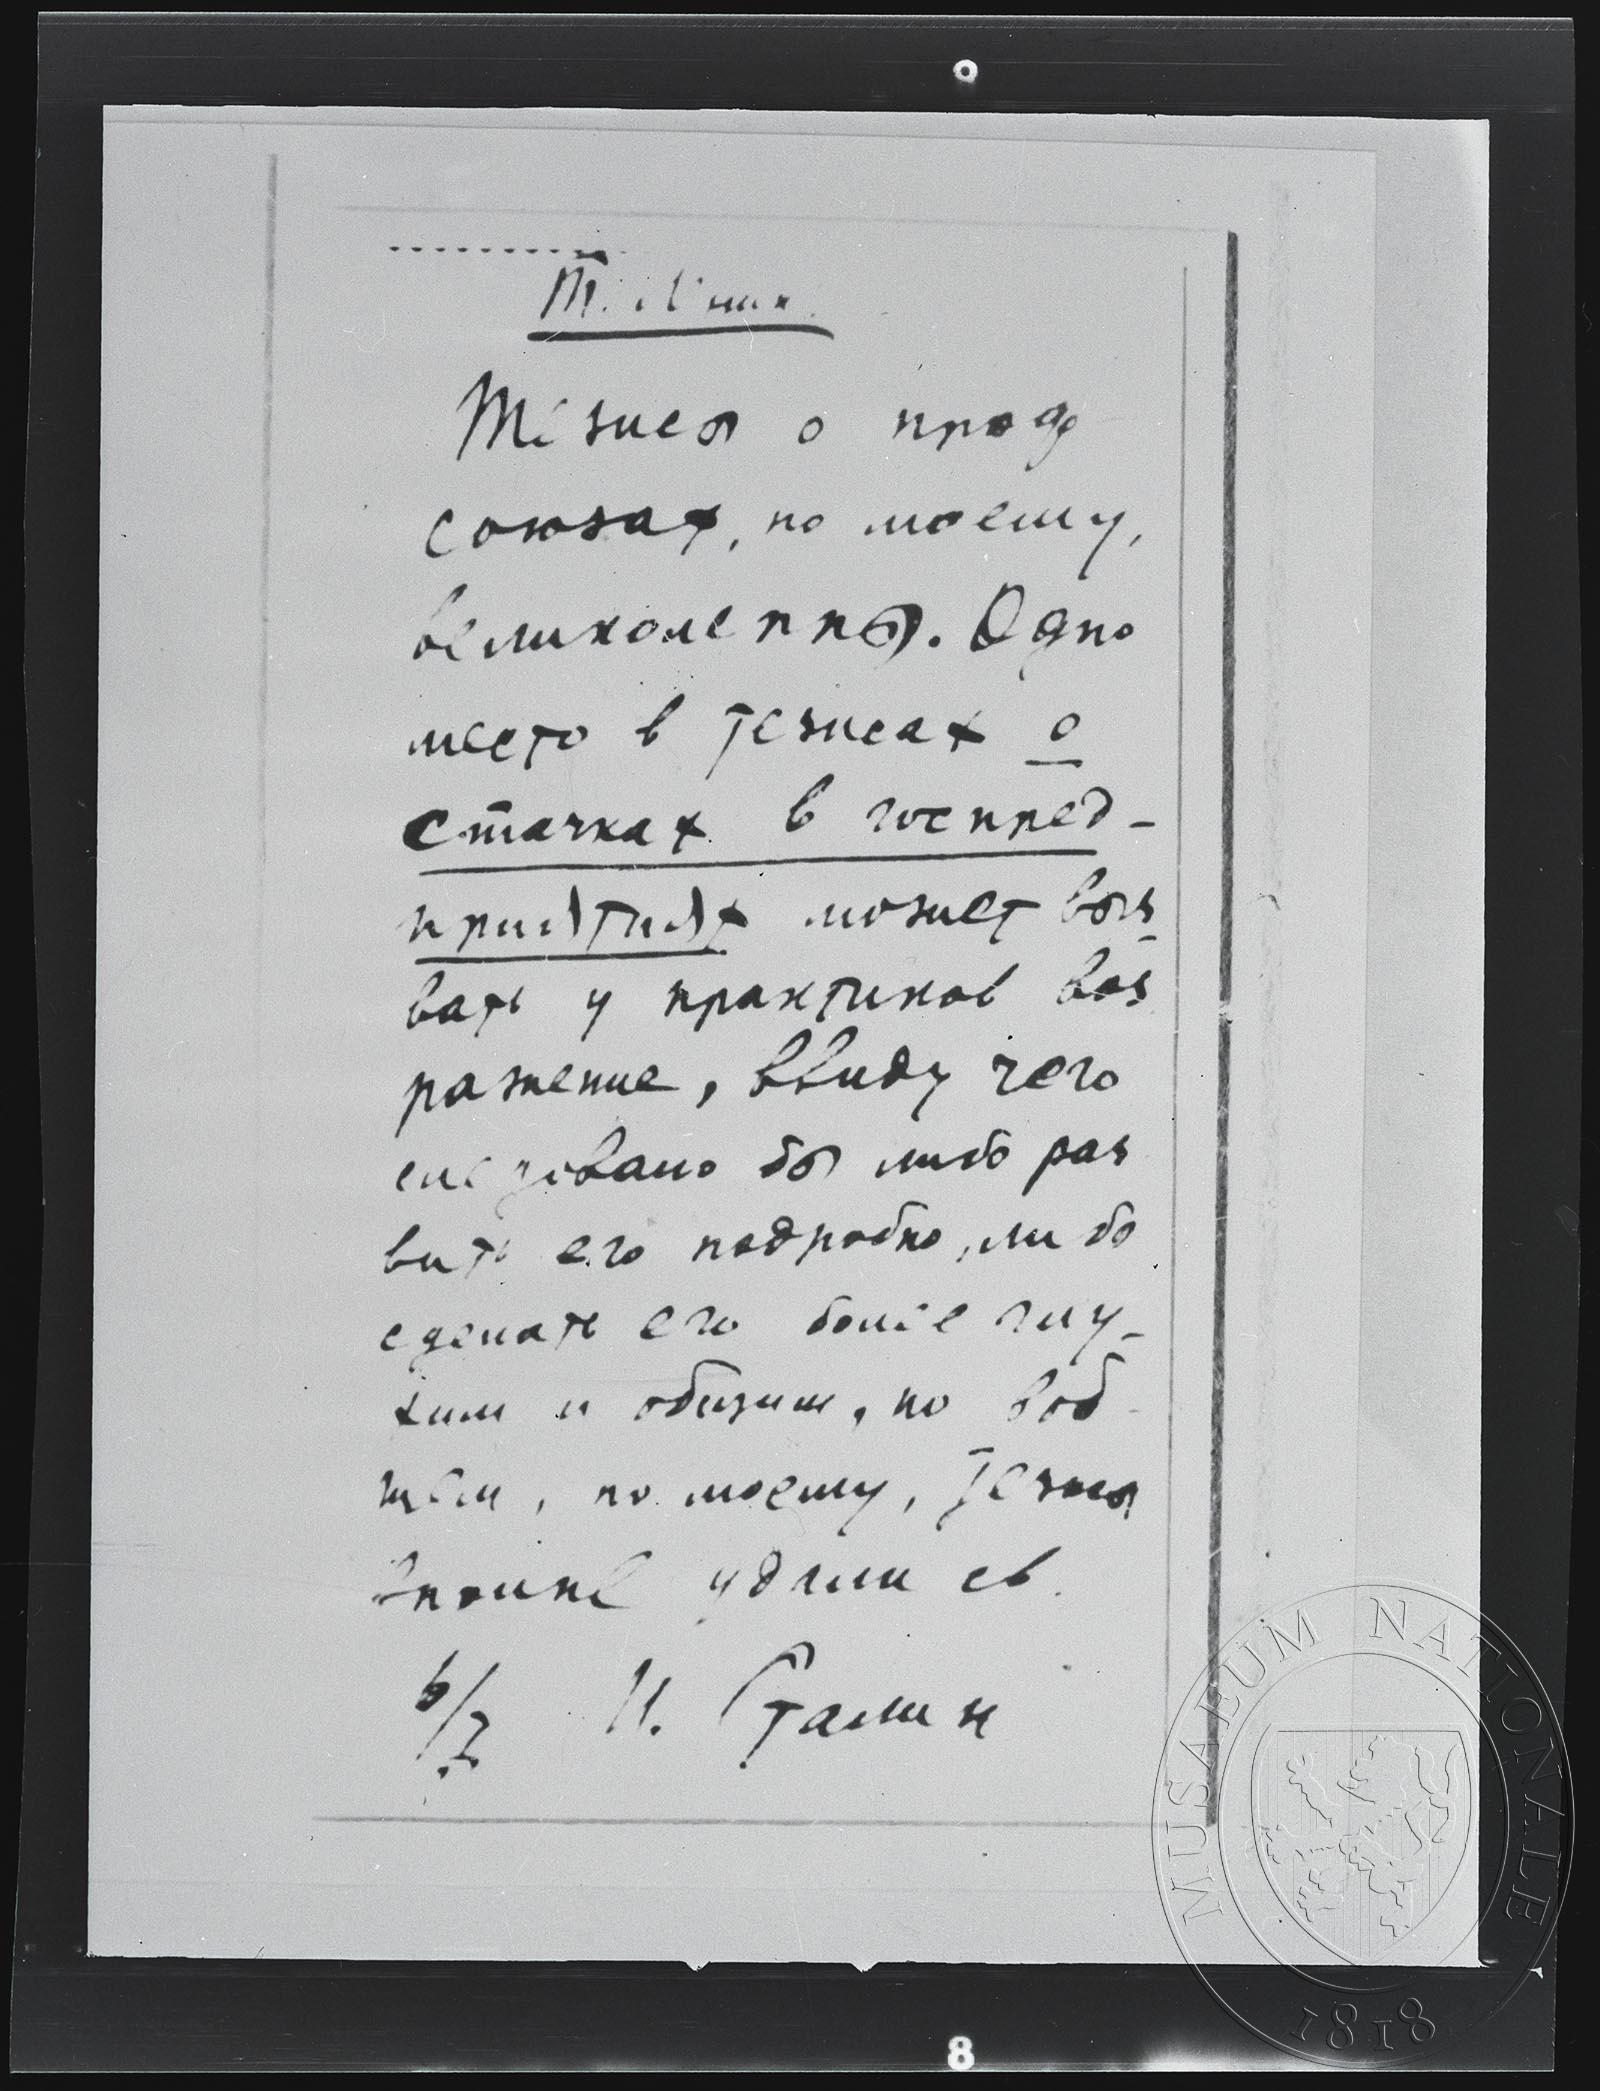 Т. Ленин.
Тезисы о проф
союзах, по моему,
великолепны. Одно
место в тезисах о
стачках в госпред-
приятиях может выз-
вать у практиков воз
ражение, ввиду чего
следовало бы либо раз
вить его подробно, либо
сделать его более глу-
хим и общим, но вооб-
щем, по моему, тезисы
вполне удались.
6/I И. Сталин
8
MUSAEUM NATIONALE
1818